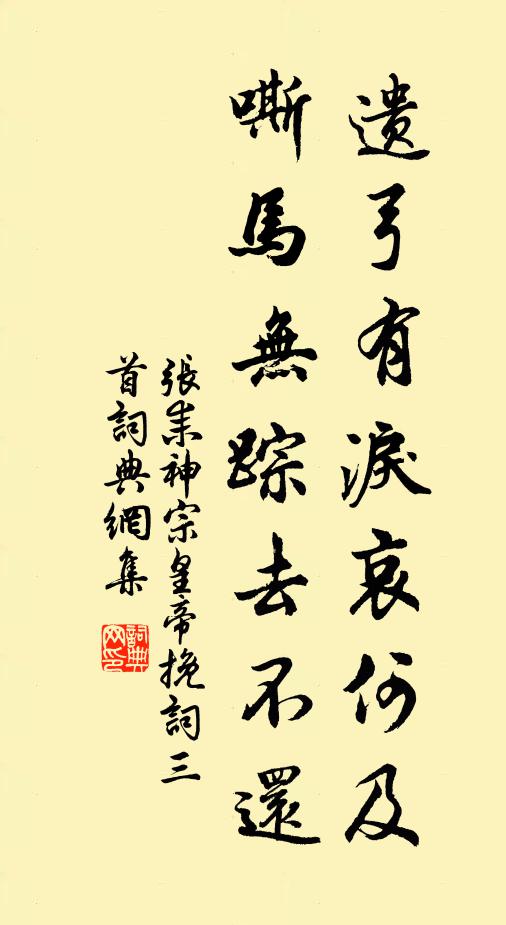 遗弓有淚哀何及
嘶馬無踪去不還
張耒神宗皇帝挽詞三
首詞典網集
詞典
网印